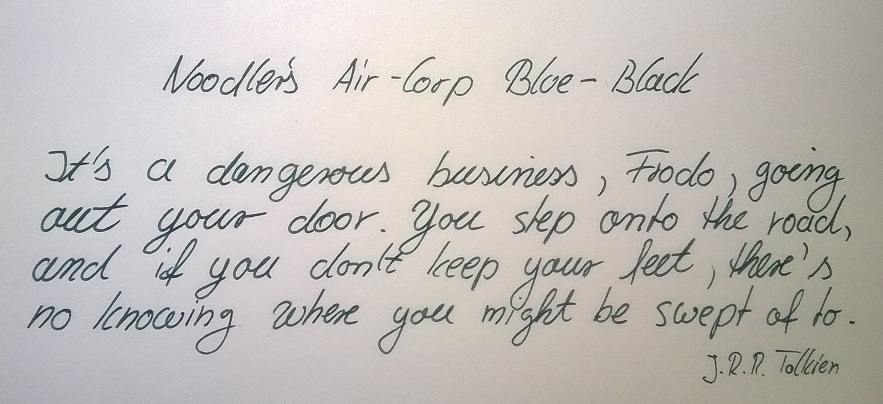 Noodler's Air-Corp Blue-Black
It's a dangerous business, Frodo, going
out your door. You step onto the road,
and if you don't keep your feet, there's
no knowing where you might be swept of to.
J.R.R. Tolkien